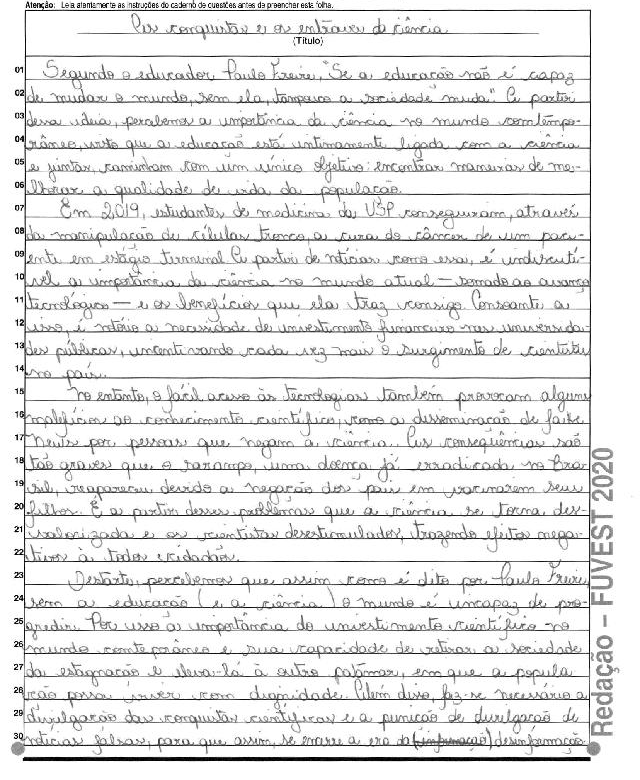 Atenção: Leia atentamente as instruções do caderno de questões antes de preencher esta folha.
As conquistas e os entraves da ciência
(Título)
01 Segundo o educador Paulo Freire, "Se a educação não é capaz
02 de mudar o mundo, sem ela, tampouco a sociedade muda". A partir
03 dessa ideia, percebemos a importância da ciência no mundo contempo-
04 râneo, visto que a educação está intimamente ligada com a ciência
05 e juntas, caminham com um único objetivo: encontrar maneiras de me-
06 lhorar a qualidade de vida da população.
07 Em 2019, estudantes de medicina da USP conseguiram, através
08 da manipulação de células tronco, a cura do câncer de um paci-
09 ente em estágio terminal. A partir de notícias como essa, é indiscutí-
10 vel a importância da ciência no mundo atual — somado ao avanço
11 tecnológico — e os benefícios que ela traz consigo. Consoante a
12 isso, é nítido a necessidade de investimento financeiro nas universida-
13 des públicas, incentivando cada vez mais o surgimento de cientistas
14 no país.
15 No entanto, o fácil acesso às tecnologias também provocam alguns
16 malefícios ao conhecimento científico, como a disseminação de fake
17 news por pessoas que negam a ciência. As consequências são
18 tão graves que o sarampo, uma doença já erradicada no Bra-
19 sil, reapareceu devido a negação dos pais em vacinarem seus
20 filhos. É a partir desses problemas que a ciência se torna des-
21 valorizada e os cientistas desestimulados, trazendo efeitos nega-
22 tivos à todos cidadãos.
23 Destarte, percebemos que assim como é dito por Paulo Freire,
24 sem a educação (e a ciência) o mundo é incapaz de pro-
25 gredir. Por isso a importância do investimento científico no
26 mundo contemporâneo e sua capacidade de retirar a sociedade
27 da estagnação e levá-la à outro patamar, em que a popula
28 ção possa viver com dignidade. Além disso, faz-se necessário a
29 divulgação das conquistas científicas e a punição de divulgação de
30 notícias falsas, para que assim, se encerre a era da (informação) desinformação.
Redação - FUVEST 2020